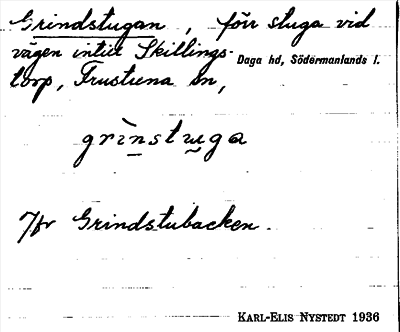 Grindstugan, förr stuga vid
vägen intill Skillings-
Daga hd, Södermanlands l.
torp, Frustuna sn,
grìnstuga
Jfr Grindstubacken.
KARL-ELIS NYSTEDT 1936